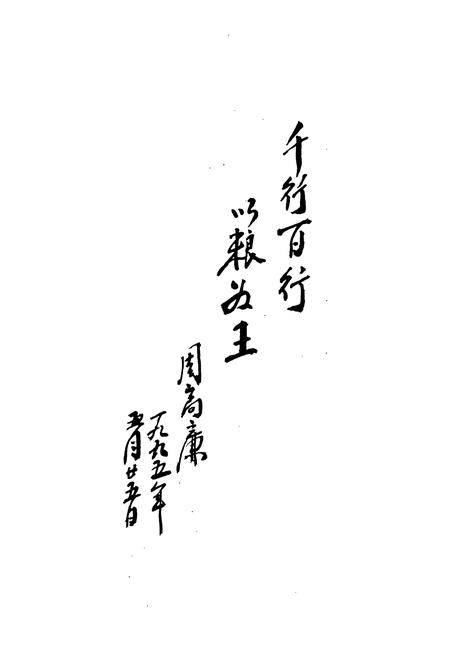 千行百行
以粮为王
周高廉
一九九五年
五月廿五日